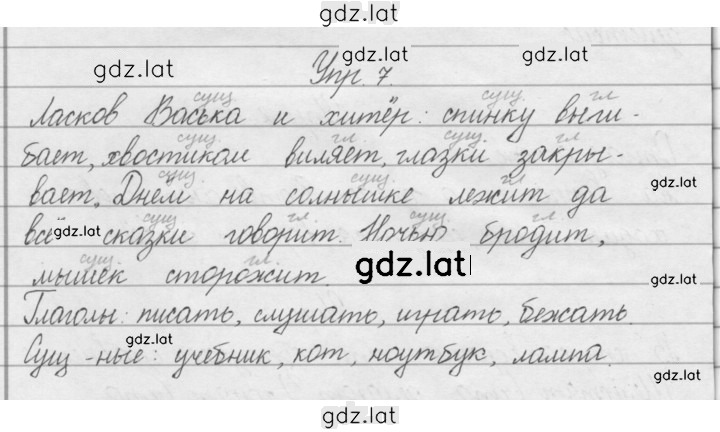 gdz.lat
gdz.lat gdz.lat
gdz.lat Упр. 7.
сущ сущ. гл
Ласков Васька и хитёр: спинку выги-
сущ гл. сущ. гл
бает, хвостиком виляет, глазки закры-
сущ. сущ. гл
вает. Днём на солнышке лежит да gdz.lat
сущ гл. сущ. гл
всё gdz.lat сказки говорит. Ночью бродит,
сущ. гл.
мышек сторожит. gdz.lat gdz.lat
Глаголы: писать, слушать, играть, бежать.
gdz.lat
Сущ-ные: учебник, кот, ноутбук, лампа.
gdz.lat
gdz.lat